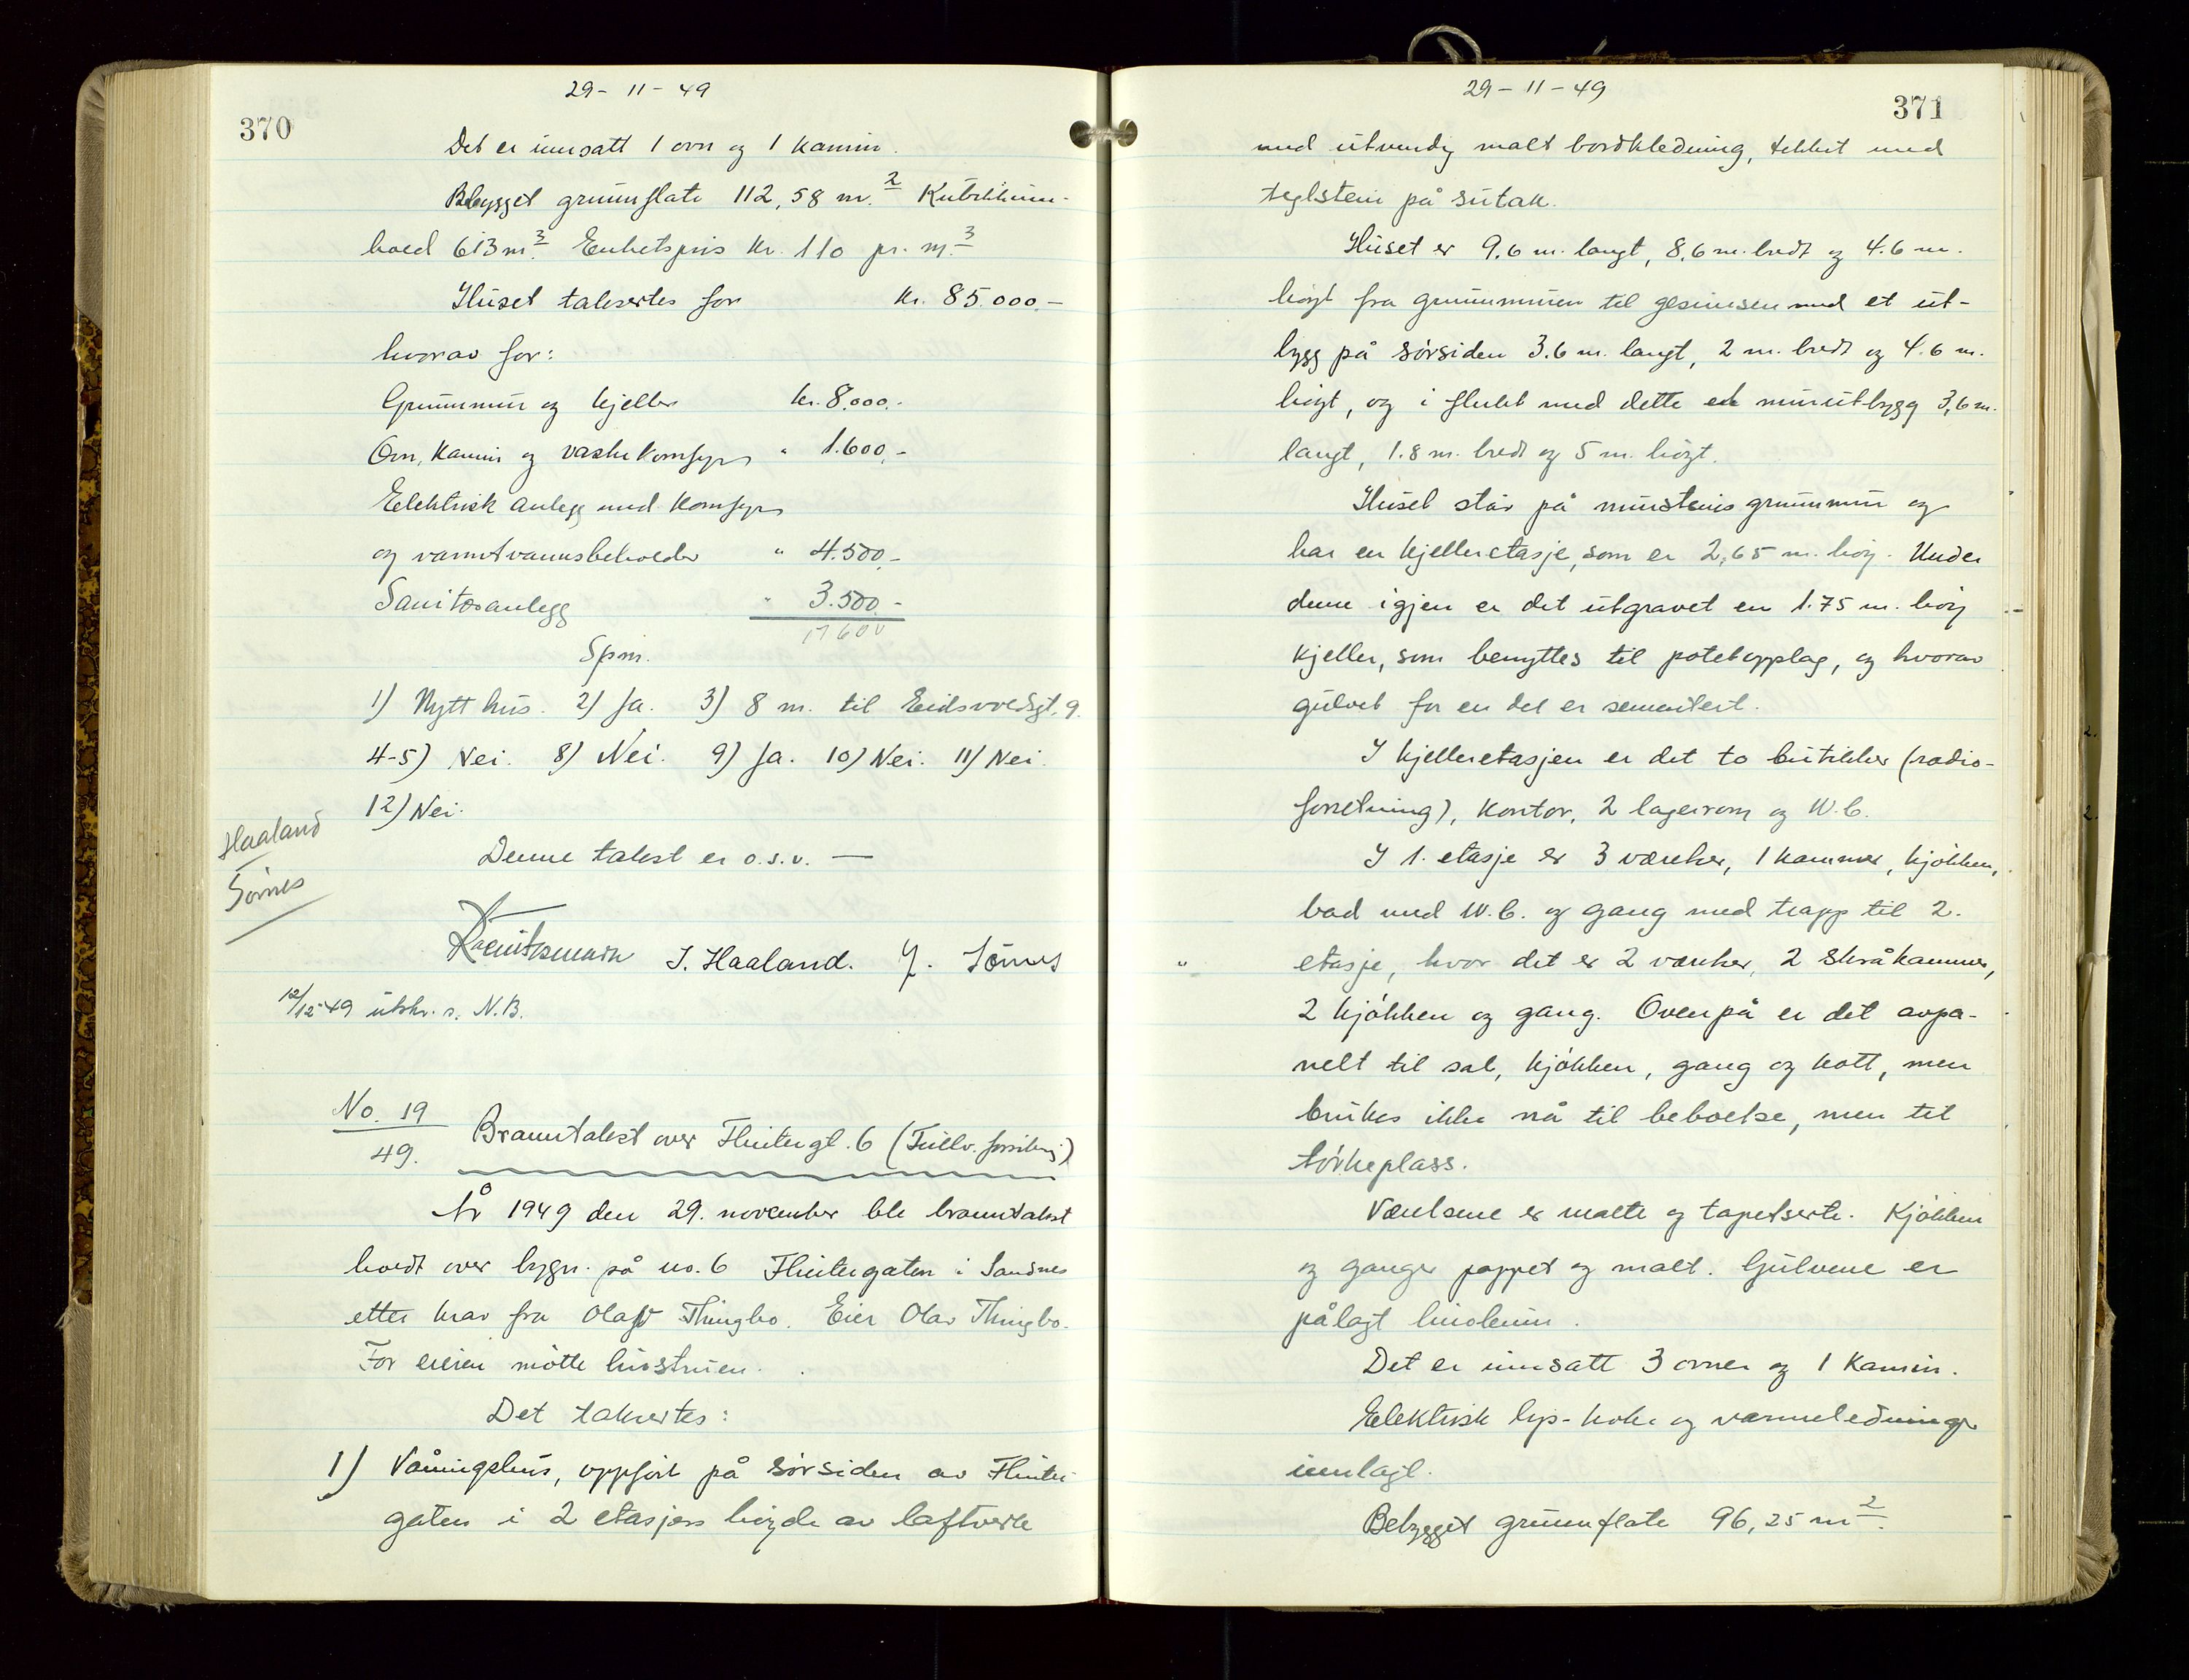 29-11-49
370
Det er innsatt 1 ovn og 1 kamin.
Bebygget grunnflate 112,58 m.² Kubikkinn-
hold 613 m³. Enhetspris kr. 110 pr. m³
Huset takseres for kr. 85.000.-
hvorav for:
Grunnmur og kjeller kr. 8.000.-
Ovn, kamin og vaskekomfyr " 1.600,-
Elektrisk anlegg med komfyr
og varmtvannsbeholder " 4.500,-
Sanitæranlegg " 3.500.-
17600
Spm.
1) Nytt hus. 2) Ja. 3) 8 m. til Eidsvollsgt. 9.
4-5) Nei. 8) Nei. 9) Ja. 10) Nei. 11) Nei.
12) Nei.
Haaland
Tørres
Denne takst er o.s.v. —
J. Haaland. J. Tørres
12/12-49 utskr. s. N.B.
No. 19
49.
Branntakst over Flintergt. 6 (Frillv. forsikring)
År 1949 den 29. november ble branntakst
holdt over bygn. på no. 6 Flintergaten i Sandnes
etter krav fra Olav Thingbo. Eier Olav Thingbo.
For eieren møtte hustruen.
Det takseres:
1) Våningshus, oppført på sørsiden av Flinter-
gaten i 2 etasjers høyde av laftverk
29-11-49
371
med utvendig malt bordkledning, tekket med
teglstein på sutak.
Huset er 9.6 m. langt, 8,6 m. bredt og 4.6 m.
høyt fra grunnmuren til gesimsen med et ut-
bygg på sørsiden 3.6 m. langt, 2 m. bredt og 4.6 m.
høyt, og i flukt med dette et murutbygg 3,6 m.
langt, 1.8 m. bredt og 5 m. høyt.
Huset står på murstens grunnmur og
har en kjelleretasje, som er 2,65 m. høy. Under
denne igjen er det utgravet en 1.75 m. høy
kjeller, som benyttes til potetopplag, og hvorav
gulvet for en del er sementert.
I kjelleretasjen er det to butikker (radio-
forretning), kontor, 2 lagerrom og W.C.
I 1. etasje er 3 værelser, 1 kammer, kjøkken,
bad med W.C. og gang med trapp til 2.
etasje, hvor det er 2 værelser, 2 skråkammer,
2 kjøkken og gang. Ovenpå er det avpa-
nelt til sal, kjøkken, gang og kott, men
brukes ikke nå til beboelse, men til
tørkeplass.
Værelsene er malte og tapetserte. Kjøkken
og ganger pappet og malt. Gulvene er
pålagt linoleum.
Det er innsatt 3 ovner og 1 kamin.
Elektrisk lys- koke og varmeledninger
innlagt.
Bebygget grunnflate 96,25 m².